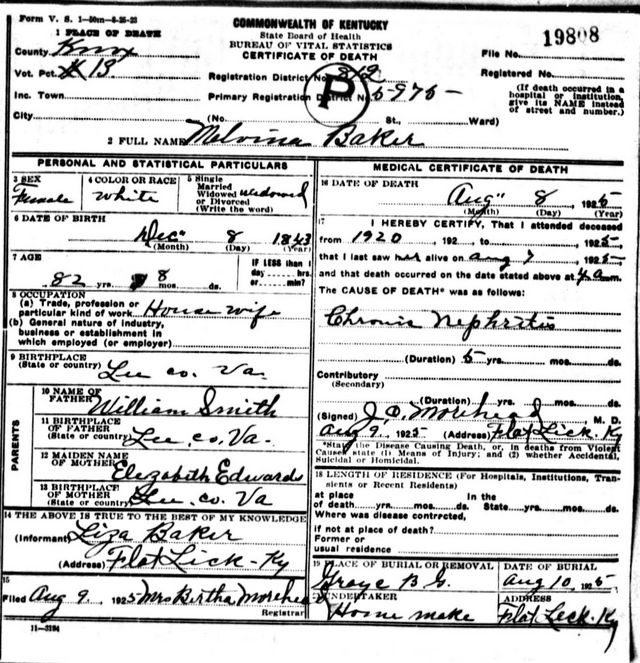 Form V. S. 1-50m-8-25-23
COMMONWEALTH OF KENTUCKY
State Board of Health
BUREAU OF VITAL STATISTICS
CERTIFICATE OF DEATH
1 PLACE OF DEATH
County Knox
File No. 19808
Vot. Pct. #15
Registration District No. 812
Registered No.
Inc. Town
Primary Registration District No. 5975
P
(If death occurred in a hospital or institution, give its NAME instead of street and number.)
City (No. St., Ward)
2 FULL NAME Melvina Baker
PERSONAL AND STATISTICAL PARTICULARS
3 SEX
Female
4 COLOR OR RACE
White
5 Single
Married
Widowed Widowed
or Divorced
(Write the word)
6 DATE OF BIRTH
Dec 8 1843
(Month) (Day) (Year)
7 AGE
82 yrs. 8 mos. ds.
IF LESS than 1
day hrs.
or min?
8 OCCUPATION
(a) Trade, profession or
particular kind of work House wife
(b) General nature of industry,
business or establishment in
which employed (or employer)
9 BIRTHPLACE
(State or country) Lee co. Va.
PARENTS
10 NAME OF
FATHER William Smith
11 BIRTHPLACE
OF FATHER
(State or country) Lee, co, Va.
12 MAIDEN NAME
OF MOTHER Elizabeth Edwards
13 BIRTHPLACE
OF MOTHER
(State or country) Lee. co. Va
14 THE ABOVE IS TRUE TO THE BEST OF MY KNOWLEDGE
(Informant) Liza Baker
(Address) Flat Lick-Ky
15
Filed Aug 9. 1925 Mrs Bertha Morehead
Registrar
11-3184
MEDICAL CERTIFICATE OF DEATH
16 DATE OF DEATH
Aug 8, 1925
(Month) (Day) (Year)
17 I HEREBY CERTIFY, That I attended deceased
from 1920, 192 to 1925
that I last saw her alive on Aug 7 1925
and that death occurred on the date stated above at 4 a m.
The CAUSE OF DEATH* was as follows:
Chronic Nephritis
(Duration) 5 yrs. mos. ds.
Contributory
(Secondary)
(Duration) yrs. mos. ds.
(Signed) J. C. Morehead M. D.
Aug 9, 1925 (Address) Flat Lick-Ky
*State the Disease Causing Death, or, in deaths from Violent
Causes state (1) Means of Injury; and (2) whether Accidental,
Suicidal or Homicidal.
18 LENGTH OF RESIDENCE (For Hospitals, Institutions, Tran-
sients or Recent Residents)
at place In the
of death yrs. mos. ds. State yrs. mos. ds.
Where was disease contrrcted,
if not at place of death?
Former or
usual residence
19 PLACE OF BURIAL OR REMOVAL
DATE OF BURIAL
B. G. Aug 10, 1925
UNDERTAKER
ADDRESS
Home make Flat Lick-Ky